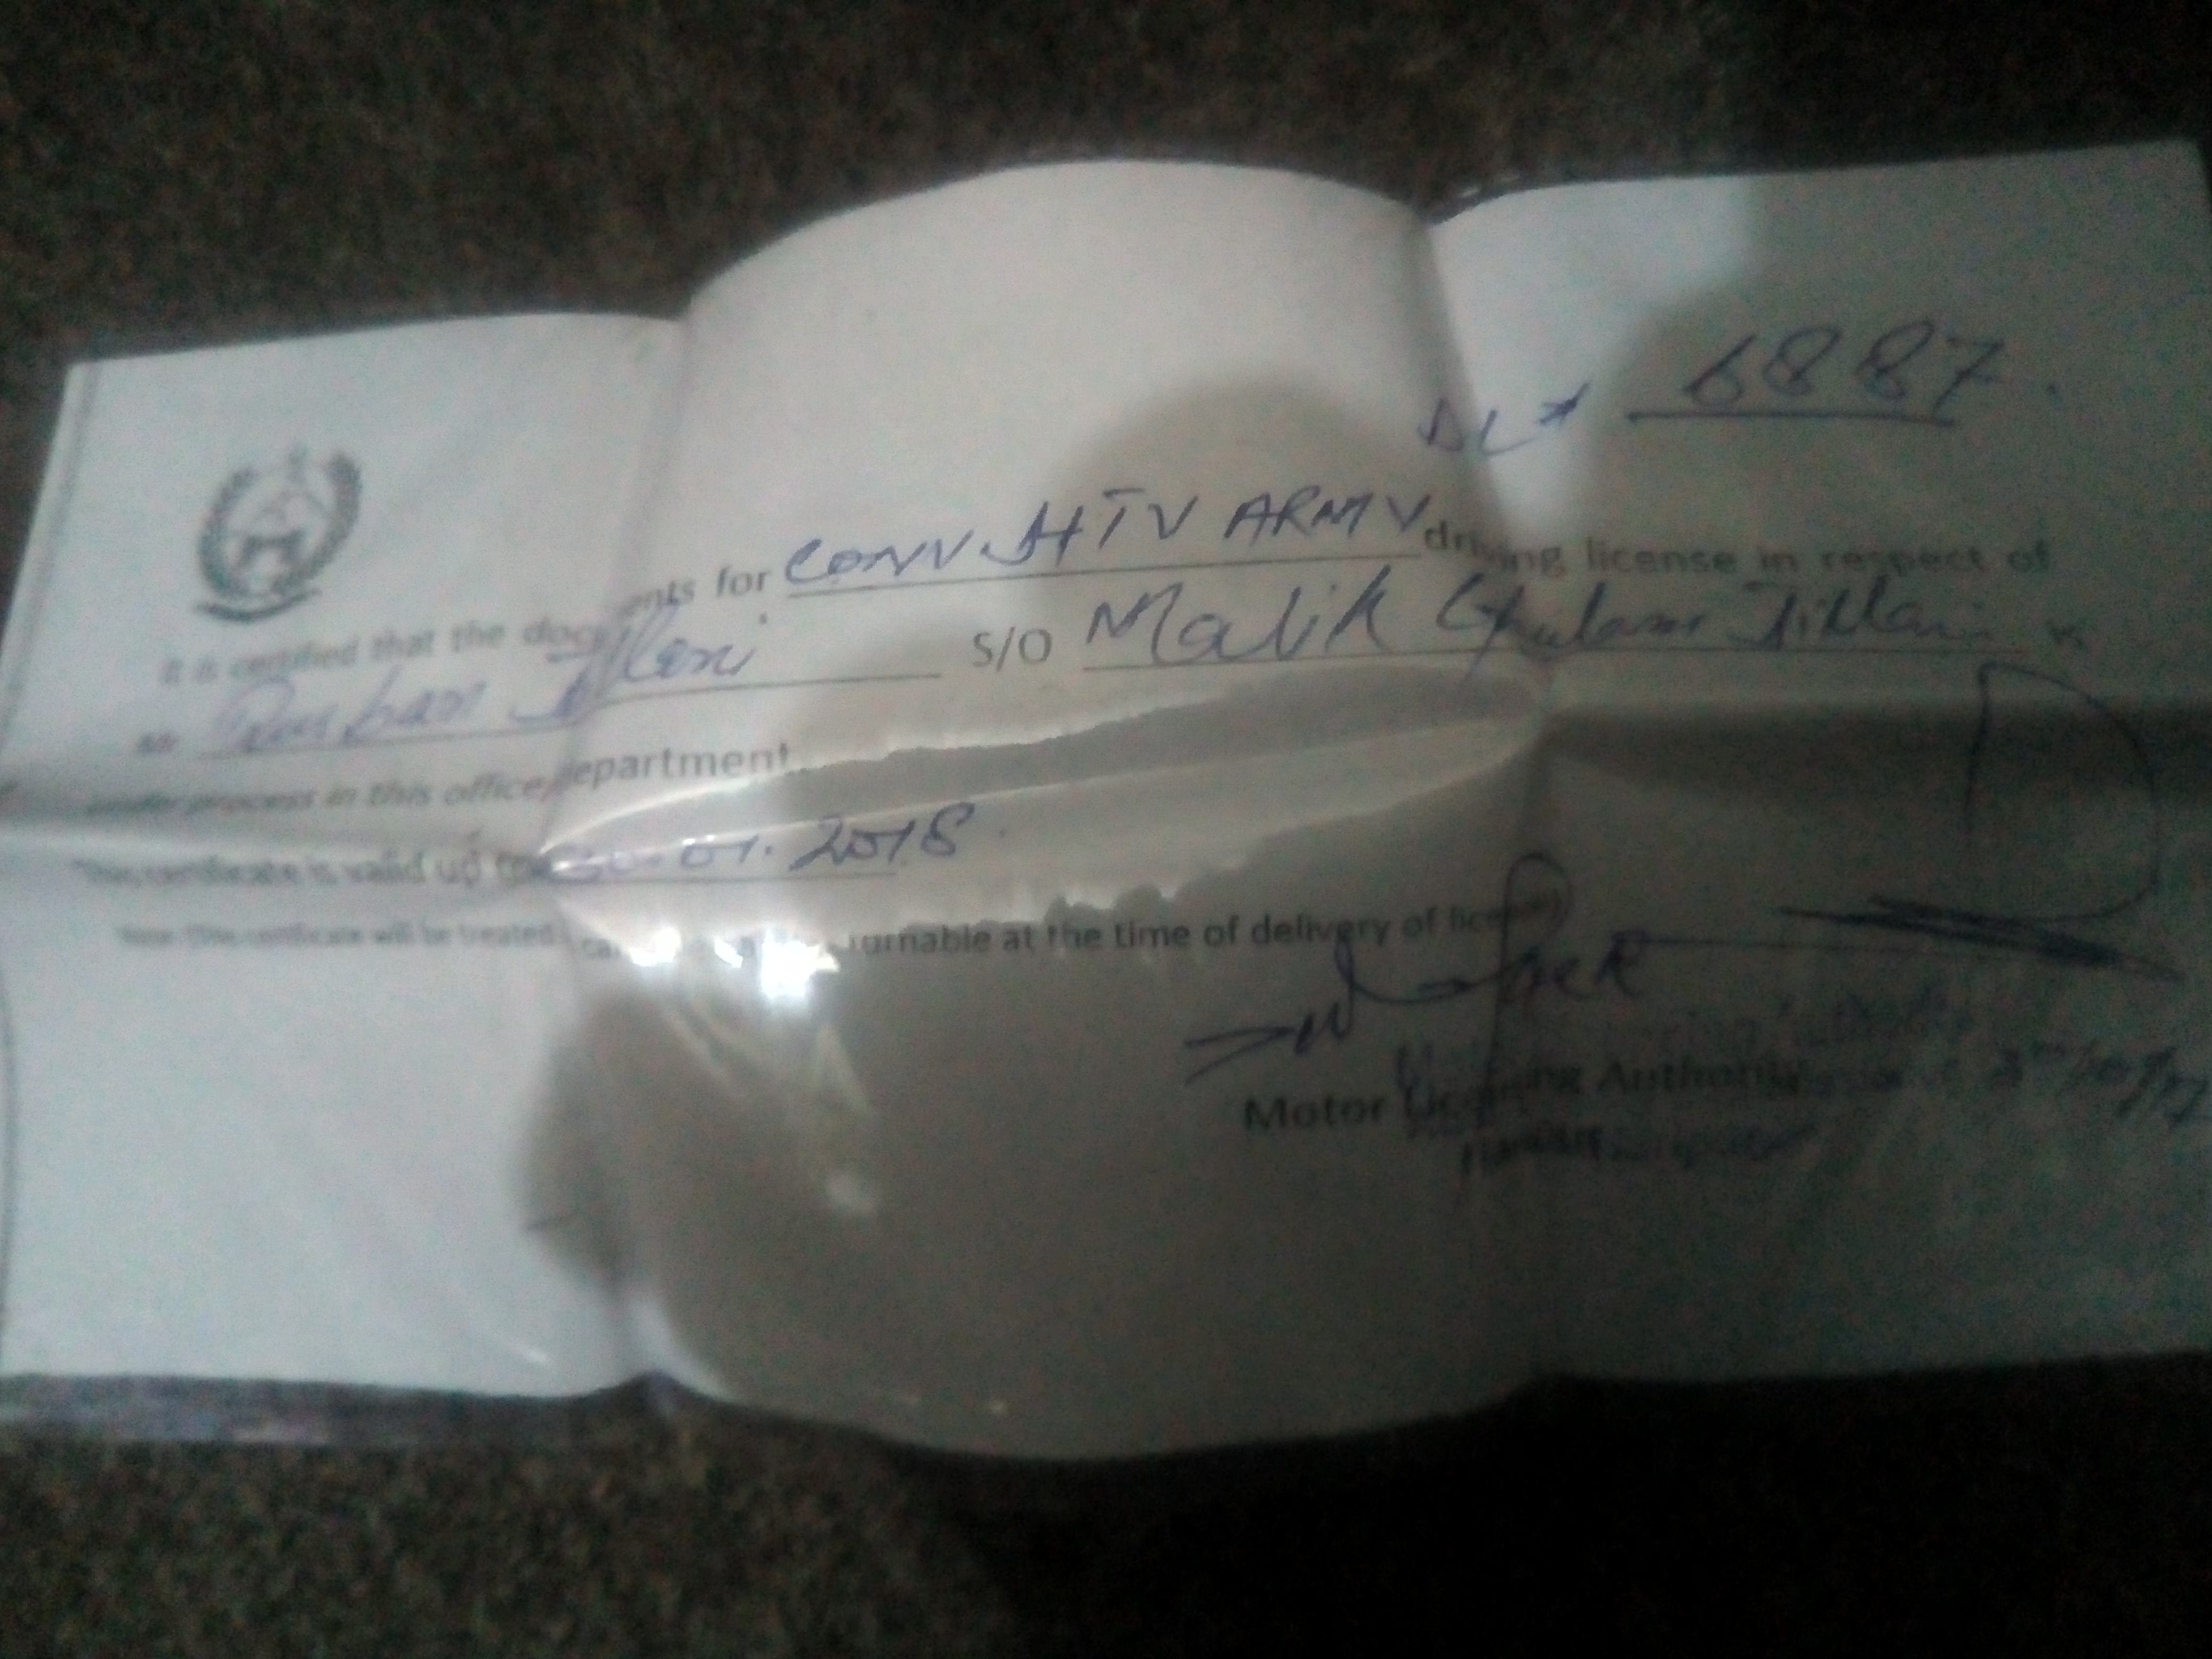 DL # 6887
It is certified that the documents for CONV. HTV ARMY driving license in respect of
Mr S/O Malik Ghulam Jillani is
under process in this office/department
This certificate is valid up to 30.01.2018
Note (This certificate will be treated at the time of delivery of license)
Motor Licensing Authority